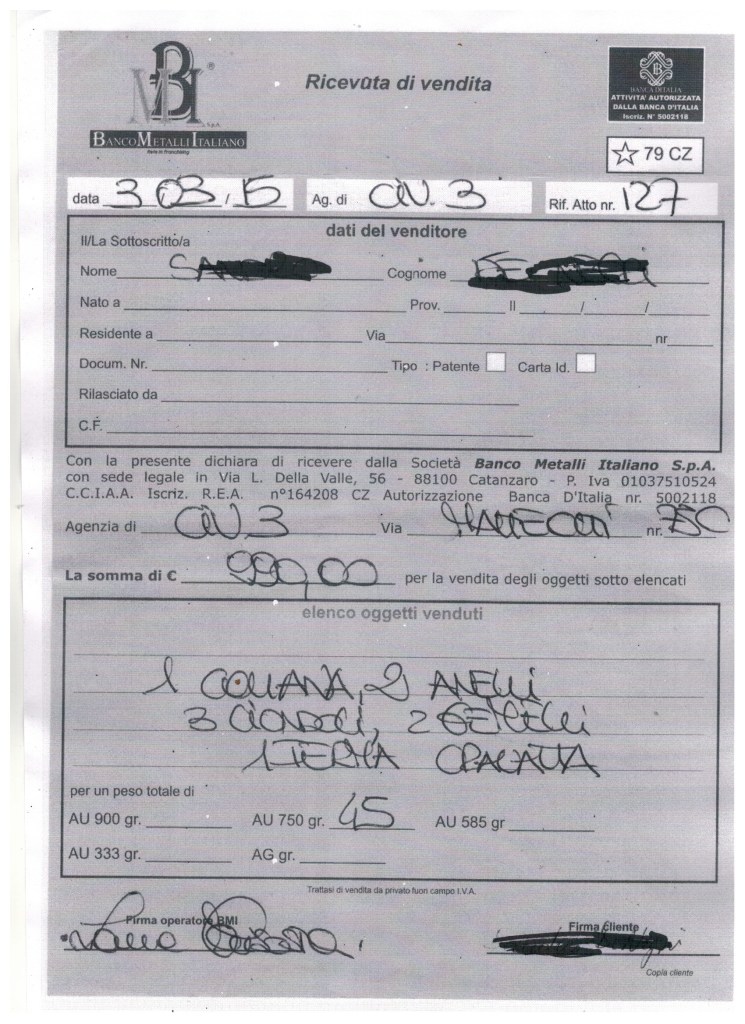 MBI ®
S.p.A.
BANCO METALLI ITALIANO
Rete in Franchising
Ricevuta di vendita
BANCA D'ITALIA
ATTIVITA' AUTORIZZATA
DALLA BANCA D'ITALIA
Iscriz. N° 5002118
79 CZ
data 3 03/15 Ag. di CIV. 3 Rif. Atto nr. 127
dati del venditore
Il/La Sottoscritto/a
Nome Cognome
Nato a Prov. Il / /
Residente a Via nr
Docum. Nr. Tipo : Patente Carta Id.
Rilasciato da
C.F.
Con la presente dichiara di ricevere dalla Società Banco Metalli Italiano S.p.A.
con sede legale in Via L. Della Valle, 56 - 88100 Catanzaro - P. Iva 01037510524
C.C.I.A.A. Iscriz. R.E.A. n°164208 CZ Autorizzazione Banca D'Italia nr. 5002118
Agenzia di CIV. 3 Via nr. 75C
La somma di € 990,00 per la vendita degli oggetti sotto elencati
elenco oggetti venduti
1 COLLANA, 2 ANELLI
3 CIONDOLI, 2 GEMELLI
1 FERMA CRAVATTA
per un peso totale di
AU 900 gr. AU 750 gr. 45 AU 585 gr
AU 333 gr. AG gr.
Trattasi di vendita da privato fuori campo I.V.A.
Firma operatore BMI Firma Cliente
Copia cliente